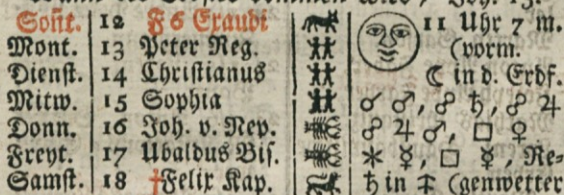 Wann der Tröster kommen wird / Joh. 15.
Sont. 12 F 6 Exaudi 11 Uhr 7 m.
Mont. 13 Peter Reg. (vorm.
Dienst. 14 Christianus ☾ in d. Erdf.
Mitw. 15 Sophia ☌ ♂, ☍ ♄, ☍ ♃
Donn. 16 Joh. v. Nep. ☍ ♃ ♂, □ ♀
Freyt. 17 Ubaldus Bis. ⚹ ☿, □ ☿, Re-
Samst. 18 †Felix Kap. ♄ in ♊ (genwetter